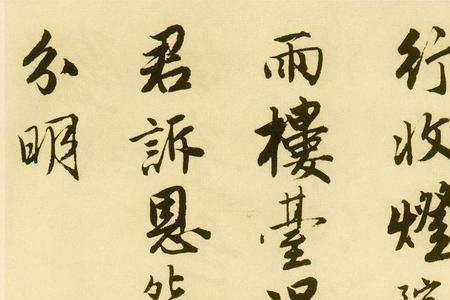 行收燈
雨樓臺
君訴恩
分明